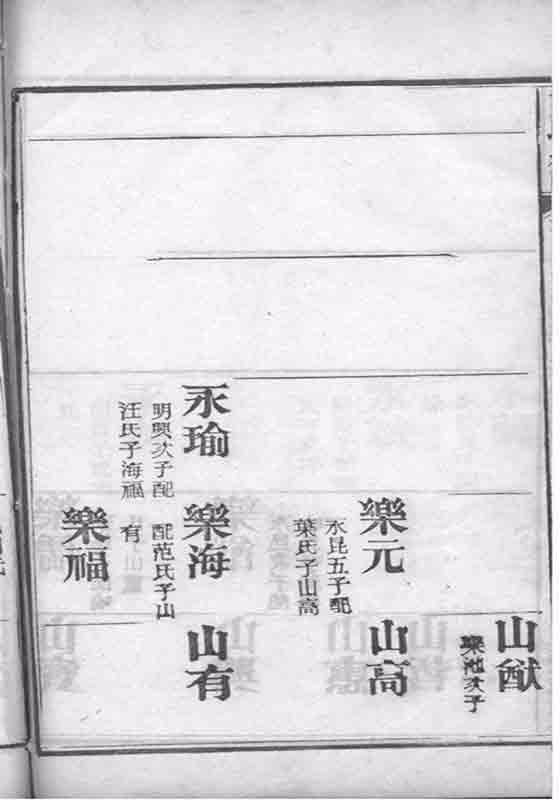 山猷
樂池次子
樂元
永昆五子配
葉氏子山高
山高
永瑜
明興次子配
汪氏子海福
樂海
配范氏子山
有
山有
樂福